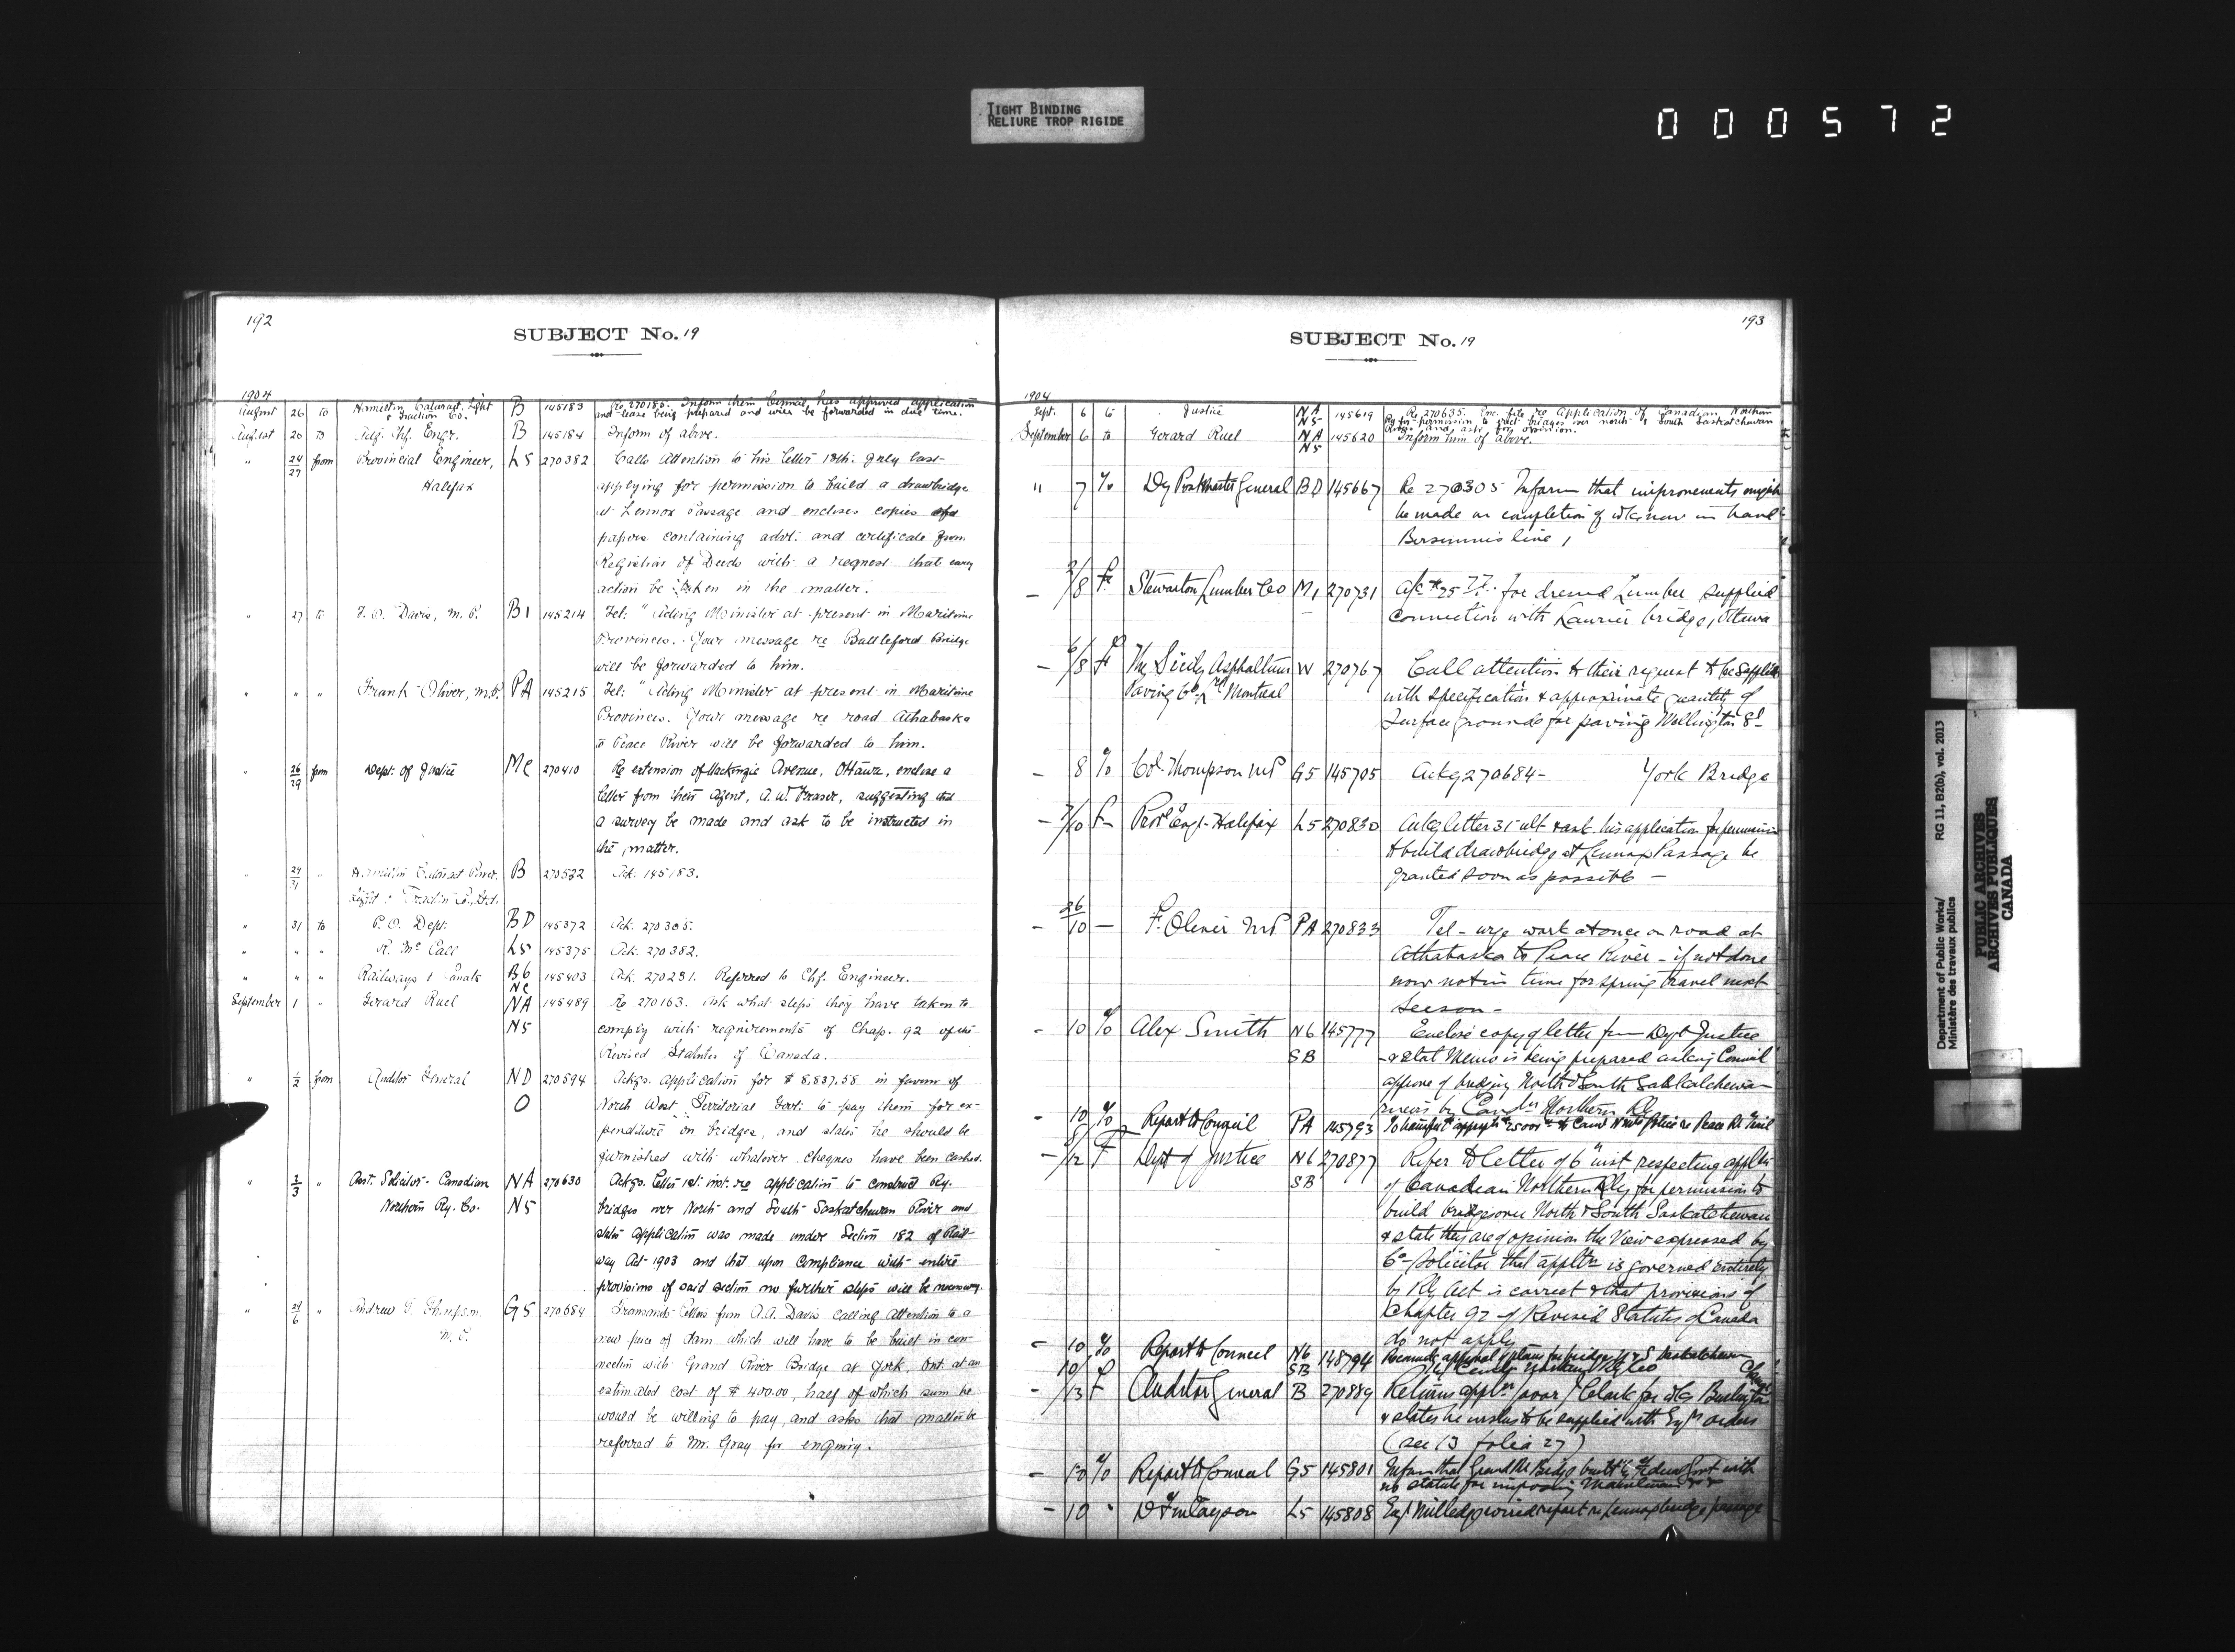 TIGHT BINDING
RELIURE TROP RIGIDE
000572
192
SUBJECT No. 19
1904
August 26 to Hamilton Cataract, Light B 145183 Re 270185. Inform them Council has approved application
& Traction Co. and lease being prepared and will be forwarded in due time.
August 26 to Actg. Chf. Engr. B 145184 Inform of above.
" 24/27 from Provincial Engineer, L5 270382 Calls attention to his letter 18th July last
Halifax applying for permission to build a drawbridge
at Lennox Passage and encloses copies of
papers containing advt. and certificate from
Registrar of Deeds with a request that early
action be taken in the matter.
" 27 to T. O. Davis, M.P. B1 145214 Tel: "Acting Minister at present in Maritime
Provinces. Your message re Battleford Bridge
will be forwarded to him.
" " " Frank Oliver, M.P. PA 145215 Tel: "Acting Minister at present in Maritime
Provinces. Your message re road Athabaska
to Peace River will be forwarded to him.
" 26/29 from Dept. of Justice Mc 270410 Re extension of Mackenzie Avenue, Ottawa, enclose a
letter from their Agent, A. W. Fraser, suggesting that
a survey be made and ask to be instructed in
the matter.
" 29/31 " Hamilton Cataract Power, B 270522 Ack. 145183.
Light & Traction Co. Ltd.
" 31 to P. O. Dept. BD 145372 Ack. 270305.
" " " R. McCall L5 145375 Ack. 270382.
" " " Railways & Canals B6 145403 Ack. 270231. Referred to Chf. Engineer.
Nc
September 1 " Gerard Ruel NA 145489 Re 270163. Ask what steps they have taken to
N5 comply with requirements of Chap. 92 of the
Revised Statutes of Canada.
" 1/2 from Auditor General ND 270594 Ackgs. application for $8,837.58 in favour of
O North West Territorial Govt. to pay them for ex-
penditure on bridges, and states he should be
furnished with whatever cheques have been cashed.
" 2/3 " Asst. Solicitor Canadian NA 270630 Ackgs. letter 1st inst. re application to construct Ry.
Northern Ry. Co. N5 bridges over North and South Saskatchewan River and
states application was made under Section 182 of Rail-
way Act 1903 and that upon compliance with entire
provisions of said section no further steps will be necessary.
" " Andrew T. Thompson, G5 270684 Transmits letters from A.A. Davis calling attention to a
M.P. new piece of dam which will have to be built in con-
nection with Grand River Bridge at York, Ont. at an
estimated cost of $400.00, half of which sum he
would be willing to pay, and asks that matter be
referred to Mr. Gray for enquiry.
193
SUBJECT No. 19
1904
Sept. 6 to Justice NA 145619 Re 270635. Enc. file re application of Canadian Northern
N5 Ry for permission to erect bridges over north & South Saskatchewan
Rivers and ask for opinion.
September 6 to Gerard Ruel NA 145620 Inform him of above.
N5
" 7 to Dy Postmaster General BD 145667 Re 270305 Inform that improvements might
be made on completion of wks now in hand
Bersimmis line
– 8 Fr Stewarton Lumber Co M1 270731 a/c $25 for dressed Lumber supplied
connection with Laurier bridge, Ottawa
– 6/8 Fr The Sicily Asphaltum W 270767 Call attention to their request to be supplied
Paving Co Montreal with specification & approximate quantity of
surface grounds for paving Wellington St
– 8 to Col. Thompson MP G5 145705 Ackg 270684 – York Bridge
– 7/10 F Provl Engr Halifax L5 270830 Ackg letter 31 ult & ask his application for permission
to build drawbridge at Lennox Passage be
granted soon as possible –
– 10 – F. Oliver MP PA 270833 Tel – urge work at once on road at
Athabaska to Peace River – if not done
now not in time for spring travel next
season –
– 10 to Alex Smith N6 145777 Enclose copy of letter from Dept Justice
SB & stat Memo is being prepared asking Council
approve of bridging North & South Saskatchewan
rivers by Canadn Northern Ry
– 10 to Report to Council PA 145793
– /12 F Dept of Justice N6 270877 Refer to letter of 6th inst respecting appltn
SB of Canadian Northern Rly for permission to
build bridges over North & South Saskatchewan
& state they are of opinion the view expressed by
Co Solicitor that appltn is governed entirely
by Rly Act is correct & that provisions of
Chapter 92 of Revised Statutes of Canada
do not apply
– 10 to Report to Council N6 145794 Recomdg approval of plans for bridge N & S Saskatchewan
SB by Candn Northern Rly Co
– 10/13 F Auditor General B 270889 Returns appltn favor Clark for wks Burlington
& states he wishes to be supplied with Engrs orders
(see 13 folio 27)
– 10 to Report to Council G5 145801 Inform that Grand R. Bridge built by Federal Govt with
no statute for imposing
– 10 " D Finlayson L5 145808 Engr Milledge wired report re Lennox bridge passage
Department of Public Works/ RG 11, B2(b), vol. 2013
Ministère des travaux publics
PUBLIC ARCHIVES
ARCHIVES PUBLIQUES
CANADA